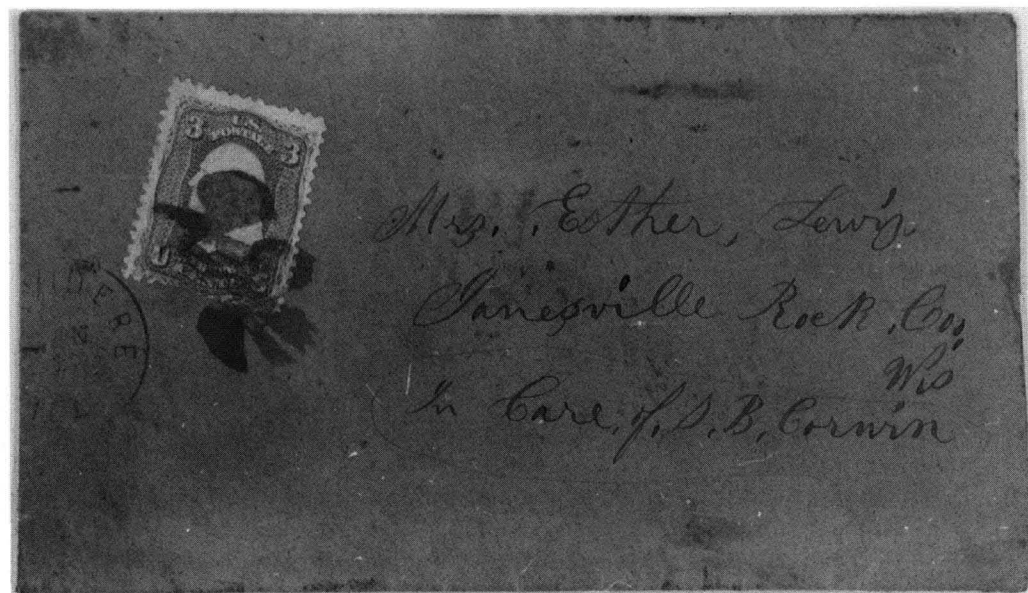 U.S.
POSTAGE
3 3
ERE
Mrs. Esther, Lewis
Janesville Rock, Co,
Wis
In Care, of, S. B. Corwin